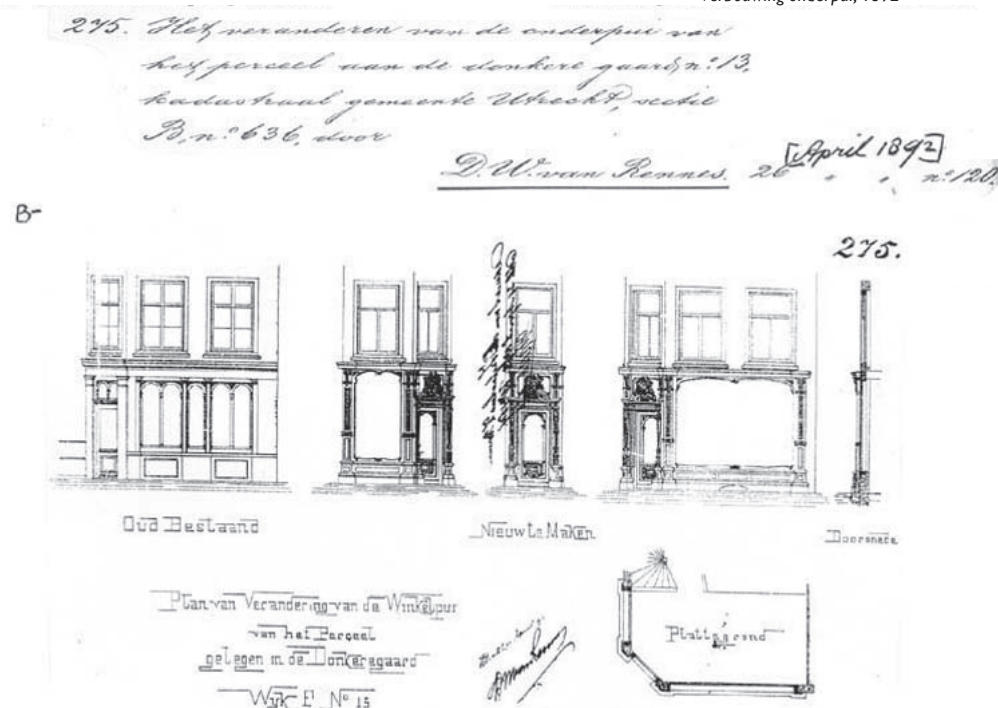 Verbouwing onderpui, 1892
275. Het veranderen van de onderpui van
het perceel aan de donkere gaard, nº. 13,
kadastraal gemeente Utrecht, sectie
B, nº. 636, door
D. W. van Rennes. 26 [April 1892] " " nº. 120.
B-
275.
Oud Bestaand
Nieuw te Maken
Doorsnede
Plan van Verandering van de Winkelpui
van het Perceel
gelegen in de Donkeregaard
Wijk E Nº 15
Plattegrond